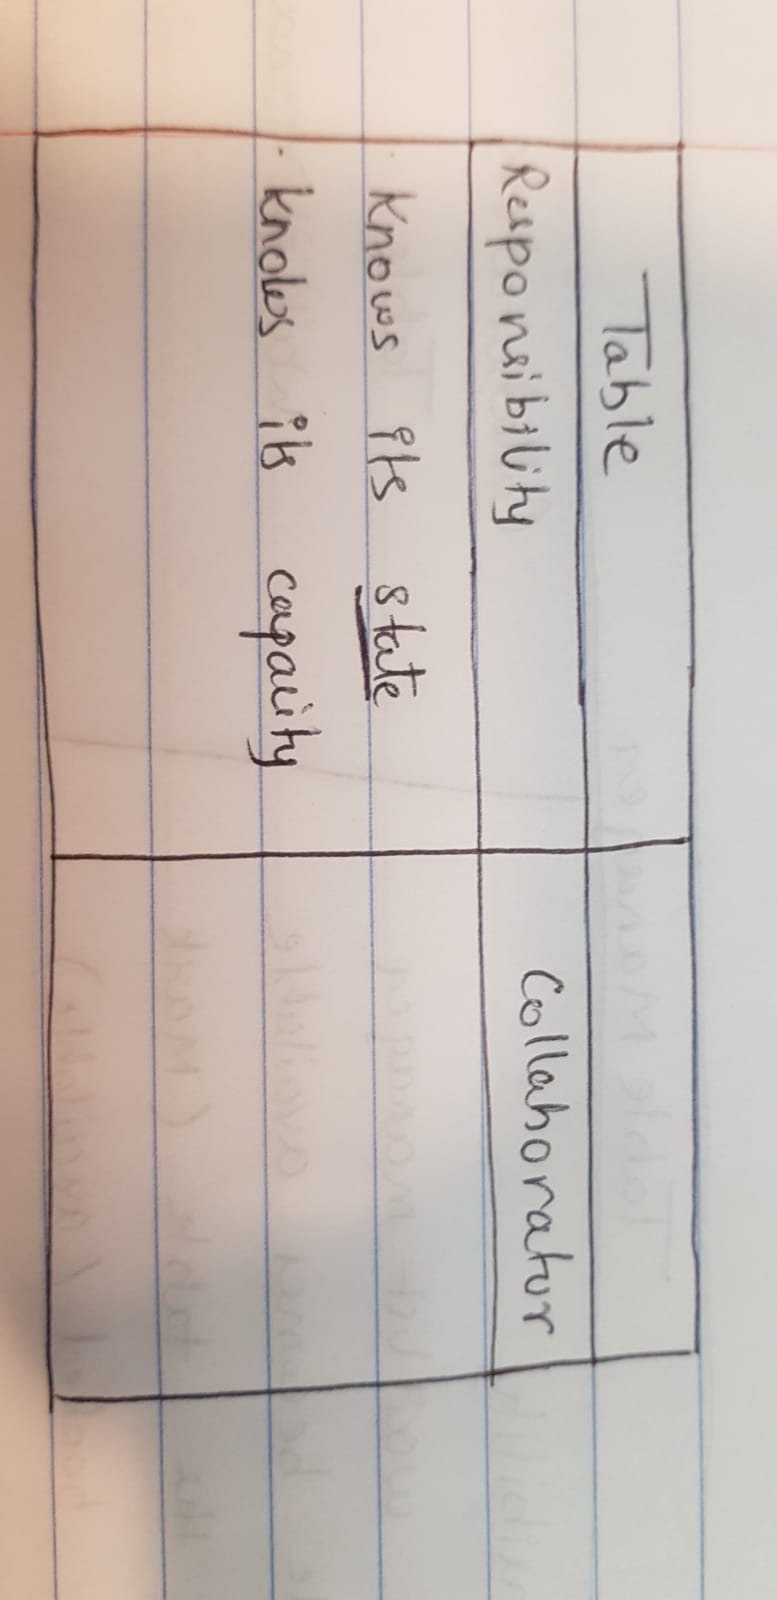 Table
Responsibility Collaborator
Knows its state
· knows its capacity